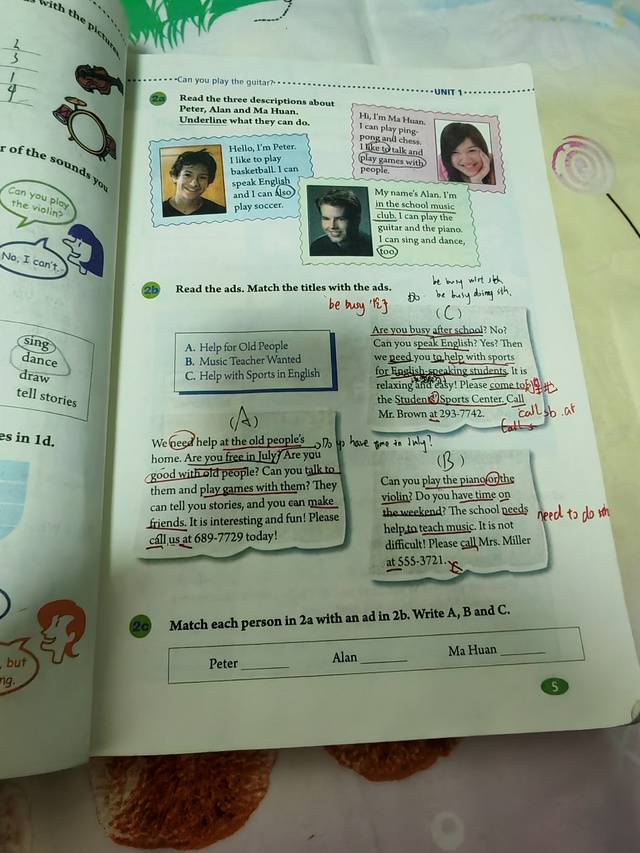 s with the pictures
2
3
1
4
r of the sounds you
Can you play
the violin?
No, I can't.
sing
dance
draw
tell stories
es in 1d.
, but
ng.
Can you play the guitar?
UNIT 1
2a
Read the three descriptions about
Peter, Alan and Ma Huan.
Underline what they can do.
Hello, I'm Peter.
I like to play
basketball. I can
speak English
and I can also
play soccer.
Hi, I'm Ma Huan.
I can play ping-
pong and chess.
I like to talk and
play games with
people.
My name's Alan. I'm
in the school music
club. I can play the
guitar and the piano.
I can sing and dance,
too.
2b
Read the ads. Match the titles with the ads.
be busy with sth.
be busy doing sth.
be busy
A. Help for Old People
B. Music Teacher Wanted
C. Help with Sports in English
(C)
Are you busy after school? No?
Can you speak English? Yes? Then
we need you to help with sports
for English-speaking students. It is
relaxing and easy! Please come to
the Students' Sports Center. Call
Mr. Brown at 293-7742.
call sb. at
(A)
We need help at the old people's
home. Are you free in July? Are you
good with old people? Can you talk to
them and play games with them? They
can tell you stories, and you can make
friends. It is interesting and fun! Please
call us at 689-7729 today!
have time in July?
(B)
Can you play the piano or the
violin? Do you have time on
the weekend? The school needs
help to teach music. It is not
difficult! Please call Mrs. Miller
at 555-3721.
need to do sth
2c
Match each person in 2a with an ad in 2b. Write A, B and C.
Peter ______ Alan ______ Ma Huan ______
5